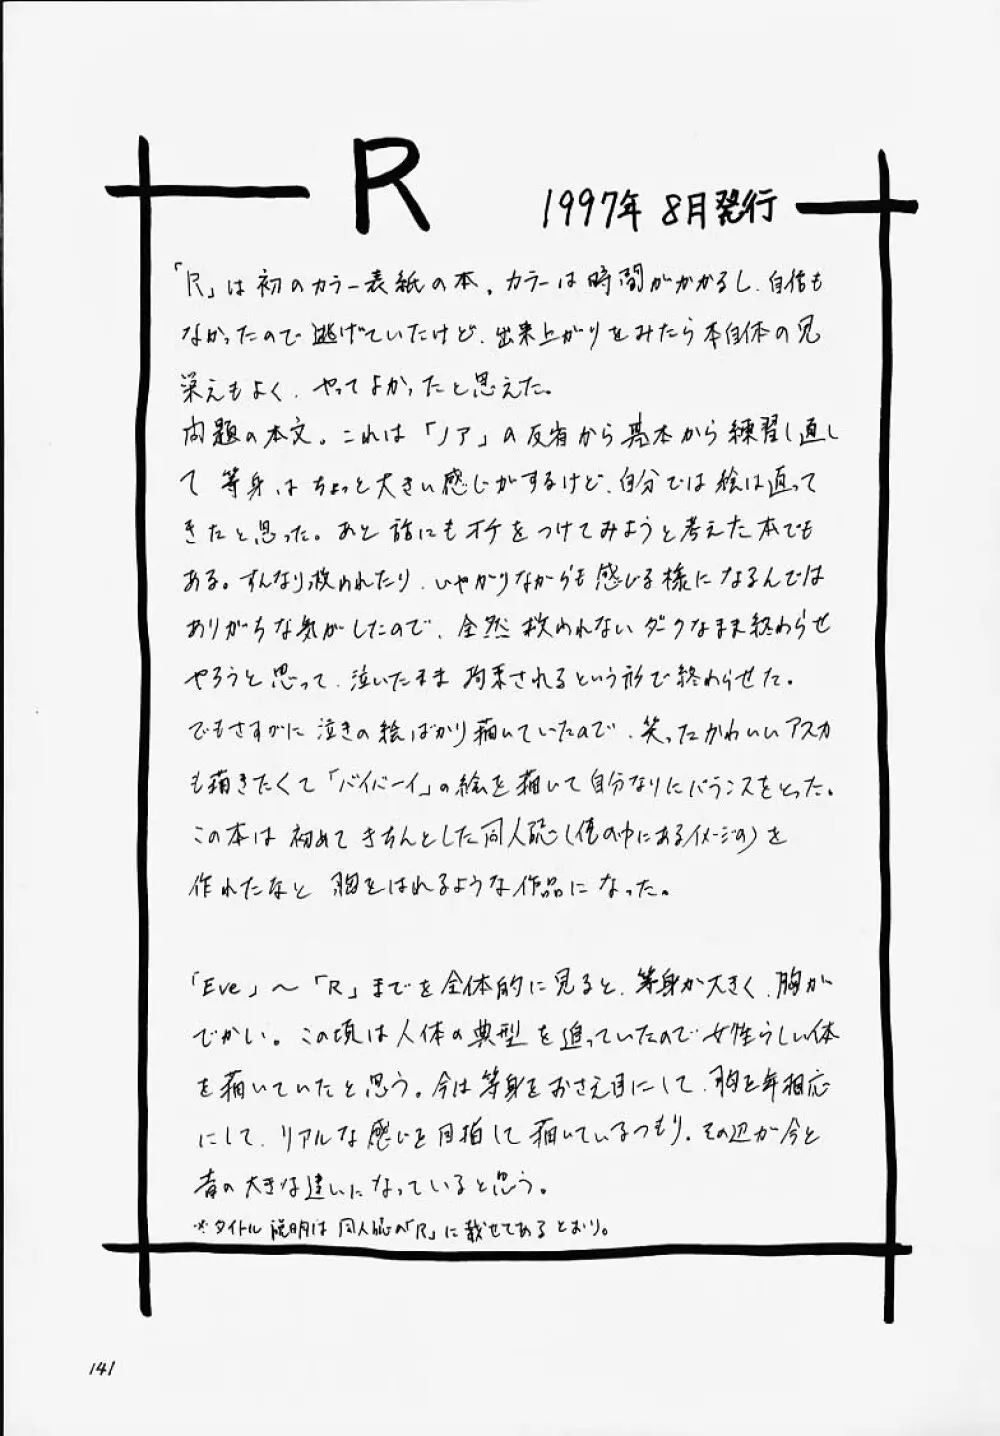 R
1997年 8月発行
「R」は初のカラー表紙の本。カラーは時間がかかるし、自信も
なかったので逃げていたけど、出来上がりをみたら本自体の見
栄えもよく、やってよかったと思えた。
問題の本文。これは「ノア」の反省から基本から練習し直し
て 等身はちょっと大きい感じがするけど、自分では絵は直って
きたと思った。あと話にもオチをつけてみようと考えた本でも
ある。すんなり救われたり、いやがりながらも感じる様になるんでは
ありがちな気がしたので、全然救われないダークなまま終わらせ
やろうと思って、泣いたまま拘束されるという形で終わらせた。
でもさすがに泣きの絵ばかり描いていたので、笑ったかわいいアスカ
も描きたくて「バイバーイ」の絵を描いて自分なりにバランスをとった。
この本は初めてきちんとした同人誌(俺の中にあるイメージの)を
作れたなと胸をはれるような作品になった。
「Eve」〜「R」までを全体的に見ると、等身が大きく、胸が
でかい。この頃は人体の典型を追っていたので女性らしい体
を描いていたと思う。今は等身をおさえ目にして、胸を年相応
にして、リアルな感じを目指して描いているつもり。その辺が今と
昔の大きな違いになっていると思う。
※タイトル説明は同人誌の「R」に載せてあるとおり。
141